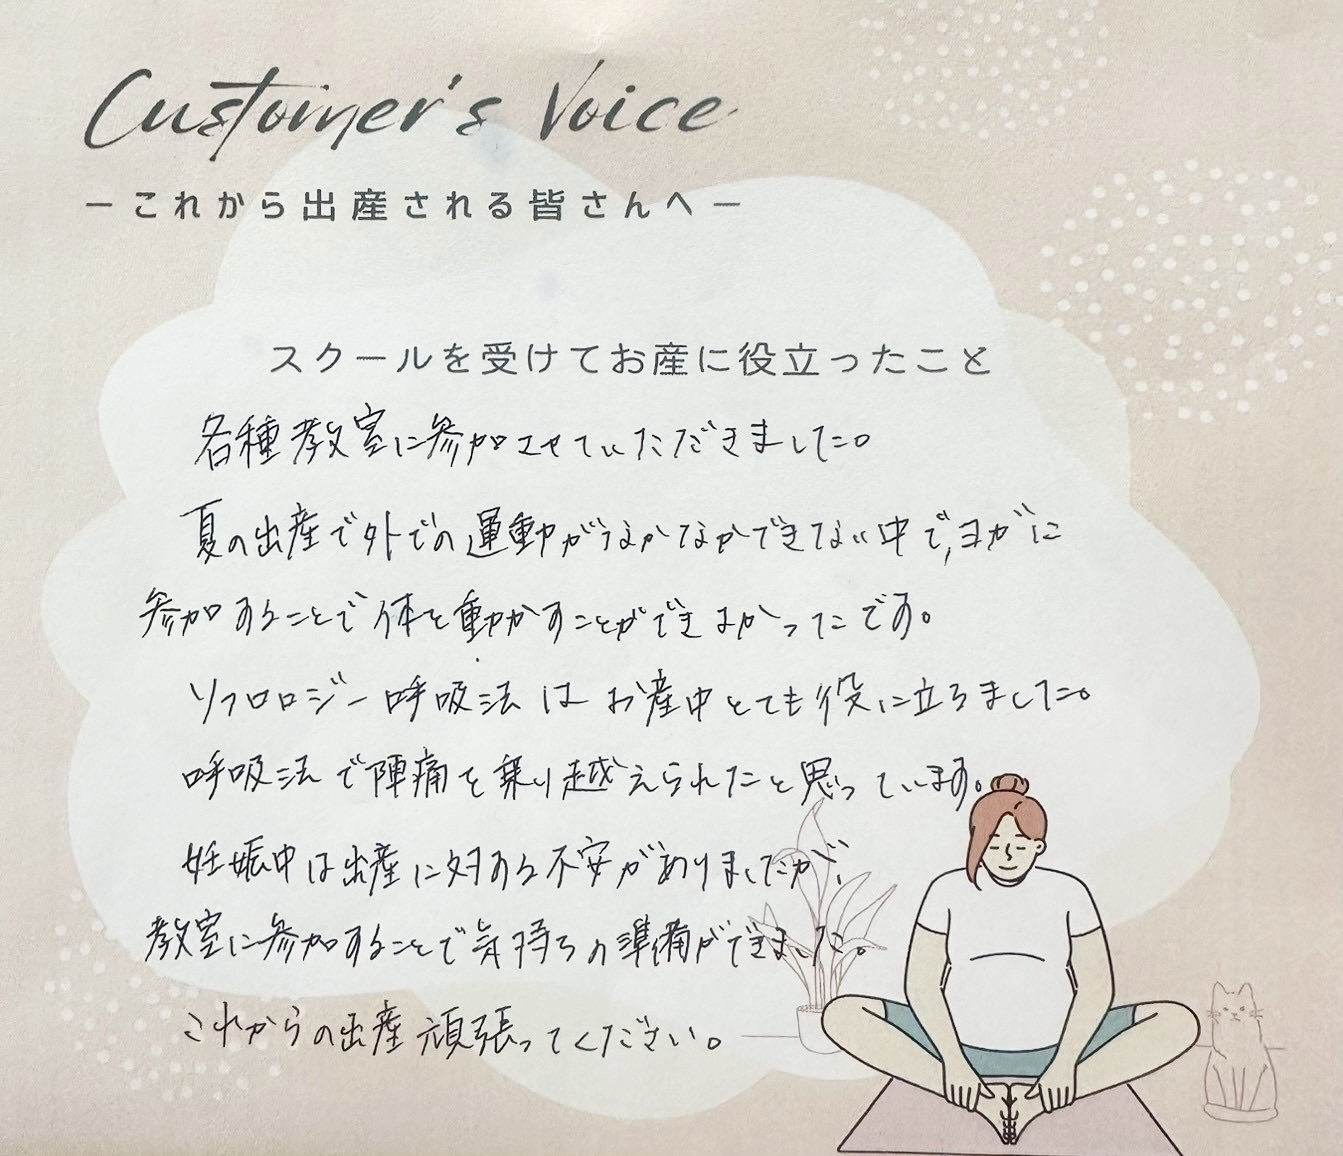 Customer's Voice
－これから出産される皆さんへ－
スクールを受けてお産に役立ったこと
各種教室に参加させていただきました。
夏の出産で外での運動がなかなかできない中で、ヨガに
参加することで体を動かすことができよかったです。
ソフロロジー呼吸法はお産中とても役に立ちました。
呼吸法で陣痛を乗り越えられたと思っています。
妊娠中は出産に対する不安がありましたが、
教室に参加することで気持ちの準備ができました。
これからの出産頑張ってください。